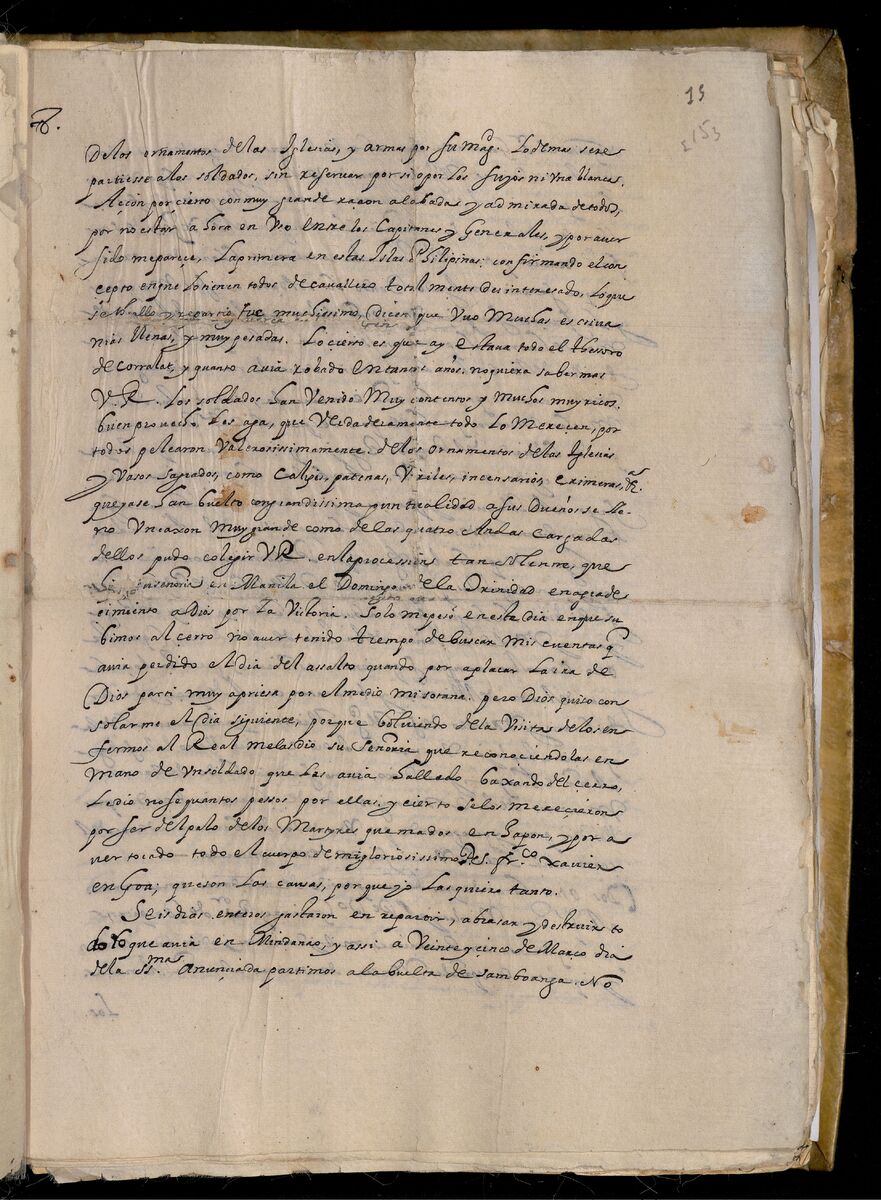 15
153
8.
Delos ornamentos delas Iglesias, y armas por su magd. Lodemas sere
partiesse alos soldados, sin reservar por si o por los suyos ni vna blanca.
Accion por cierto con muy grande raçon alabada, y admirada de todos,
por no estar ahora en vso entre los Capitanes y Generales, y por aver
sido me pareçe, la primera en estas Islas Philipinas: confirmando el con
cepto en que lo tienen todos de cavallero totalmente desinteresado, Lo que
se hallo y repartio fue muchissimo, Dicen que vuo muchas escriva
nias llenas, y muy pesadas. Lo cierto es que ay estava todo el thesoro
de Corralat, y quanto avia robado en tantos años. no quiera saber mas
V. R. Los soldados han venido muy contentos y muchos muy ricos.
buen provecho les aga, que verdaderamente todo lo mereçen, por
todos pelearon valerosissimamente. delos ornamentos delas Iglesias
y vasos sagrados, como calizes, patenas, viriles, incensarios, crismeras, &as.
que ya se han buelto con grandissima puntualidad a sus Dueños se lle-
no vn caxon muy grande como delas quatro Andas cargadas
dellos pudo colegir VR. en la procession tan solenne, que
hizo su señoria en Manila el Domingo de la Trinidad en agrade
cimiento a Dios por la Victoria. Solo me pesó en este dia en que su
bimos al cerro no aver tenido tiempo de buscar mis cuentas q
avia perdido el dia del assalto quando por aplacar la ira de
Dios parti muy apriesa por el medio mi sotana. pero Dios quiso con
solarme el dia siguiente, porque bolviendo dela Visita delos en
fermos al Real me las dio su Señoria que reconociendolas en
mano de vn soldado que las avia hallado baxando del cerro,
le dio no se quantos pessos por ellas. y cierto se los mereçieron
por ser del palo delos Martyres quemados en Japon, y por a
ver tocado todo el cuerpo de mi gloriosissimo P. S. Frco. Xavier
en Goa; que son las causas, porque yo las quiero tanto.
Seis dias enteros gastaron en repartir, abrasar y destruir to
do lo que avia en Mindanao, y assi a Veinte y cinco de Março dia
dela SSmas Anunciada partimos ala buelta de Samboanga. No